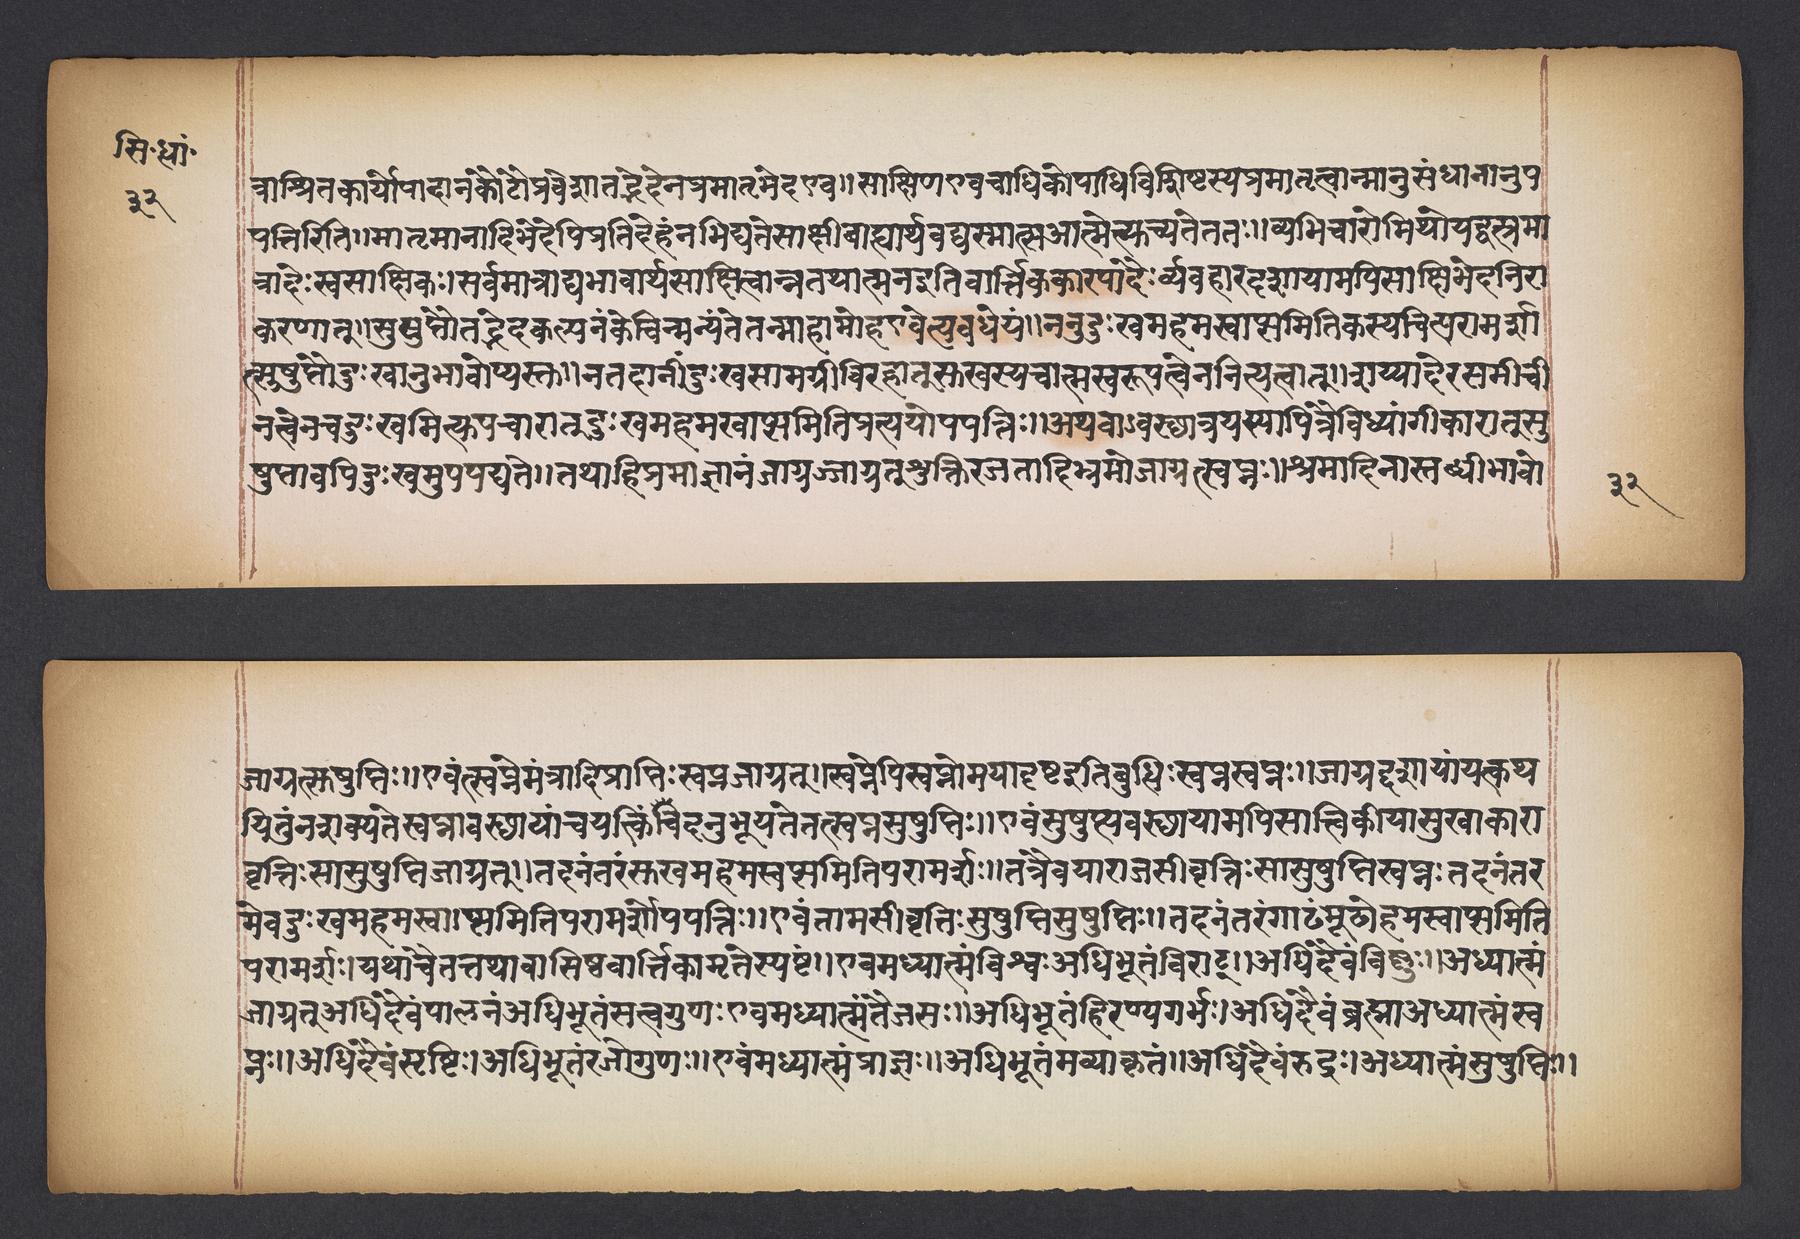 सिःध्वां॰
३२
वाश्रितकार्योपादानकोटौप्रवेशातद्भेदेनप्रमातृभेदएव॥साक्षिणएवचाधिकोपाधिविशिष्टस्यप्रमातृत्वान्मानुसंधानानुप
पत्तिरिति॥मातृमानादिभेदेपिप्रतिदेहंनभिद्यतेसाक्षीबाह्यार्थवद्यस्मात्सआत्मेत्युच्यतेततः॥व्यभिचारोमिथोयद्वत्प्रमा
त्रादेःस्वसाक्षिकः।सर्वमात्राद्यभावार्थसाक्षित्वान्नतथात्मनइतिवार्त्तिककारपादैःर्व्यवहारदृशायामपिसाक्षिभेदनिरा
करणात्॥सुषुप्तौतद्भेदकल्पनंकेचिन्मन्यंतेतन्माहामोहएवेत्यवधेयं॥ननुदुःखमहमस्वाप्समितिकस्यचित्परामर्शा
त्सुषुप्तौदुःखानुभावोप्यस्तु॥नतदानींदुःखसामग्रीविरहात्सुखस्यचात्मस्वरूपत्वेननित्यत्वात्॥शय्यादेरसमीची
नत्वेनचदुःखमित्युपचारात्दुःखमहमस्वाप्समितिप्रत्ययोपपत्तिः॥अथवाऽवस्थात्रयस्यापित्रैविध्यांगीकारात्सु
षुप्तावपिदुःखमुपपद्यते॥तथाहिप्रमाज्ञानंजाग्रज्जाग्रत्शुक्तिरजतादिभ्रमोजाग्रत्स्वप्नः॥श्रमादिनास्तब्धीभावो
३२
जाग्रत्सुषुप्तिः॥एवंत्स्वप्नेमंत्रादिप्राप्तिःस्वप्नजाग्रत्॥स्वप्नेपिस्वप्नोमयादृष्टइतिबुधिःस्वप्नस्वप्नः॥जाग्रद्दृशायांयत्कथ
यितुंनशक्यतेस्वप्नावस्थायांचयत्किंचिदनुभूयतेतत्स्वप्नसुषुप्तिः॥एवंसुषुप्त्यवस्थायामपिसात्त्विकीयासुखाकारा
वृत्तिःसासुषुप्तिजाग्रत्॥तदनंतरंसुखमहमस्वाप्समितिपरामर्शः॥तत्रैवयाराजसीवृत्तिःसासुषुप्तिस्वप्नःतदनंतर
मेवदुःखमहमस्वा।प्समितिपरामर्शोपपत्तिः॥एवंतामसीवृत्तिःसुषुप्तिसुषुप्तिः॥तदनंतरंगाढंमूढोहमस्वाप्समिति
परामर्शः।यथाचैतत्तथावासिष्ठवार्त्तिकामृतेस्पष्टं॥एवमध्यात्मंविश्वःअधिभूतंविराट्॥अधिदैवंविष्णुः॥अध्यात्मं
जाग्रत्अधिदैवंपालनंअधिभूतंसत्त्वगुणःएवमध्यात्मंतैजसः॥अधिभूतंहिरण्यगर्भः।अधिदैवंब्रह्माअध्यात्मंस्व
प्नः॥अधिदैवंसृष्टिः।अधिभूतंरजोगुणः॥एवंमध्यात्मंप्राज्ञः॥अधिभूतंमव्याकृतं॥अधिदैवंरुद्रः।अध्यात्मंसुषुप्तिः॥